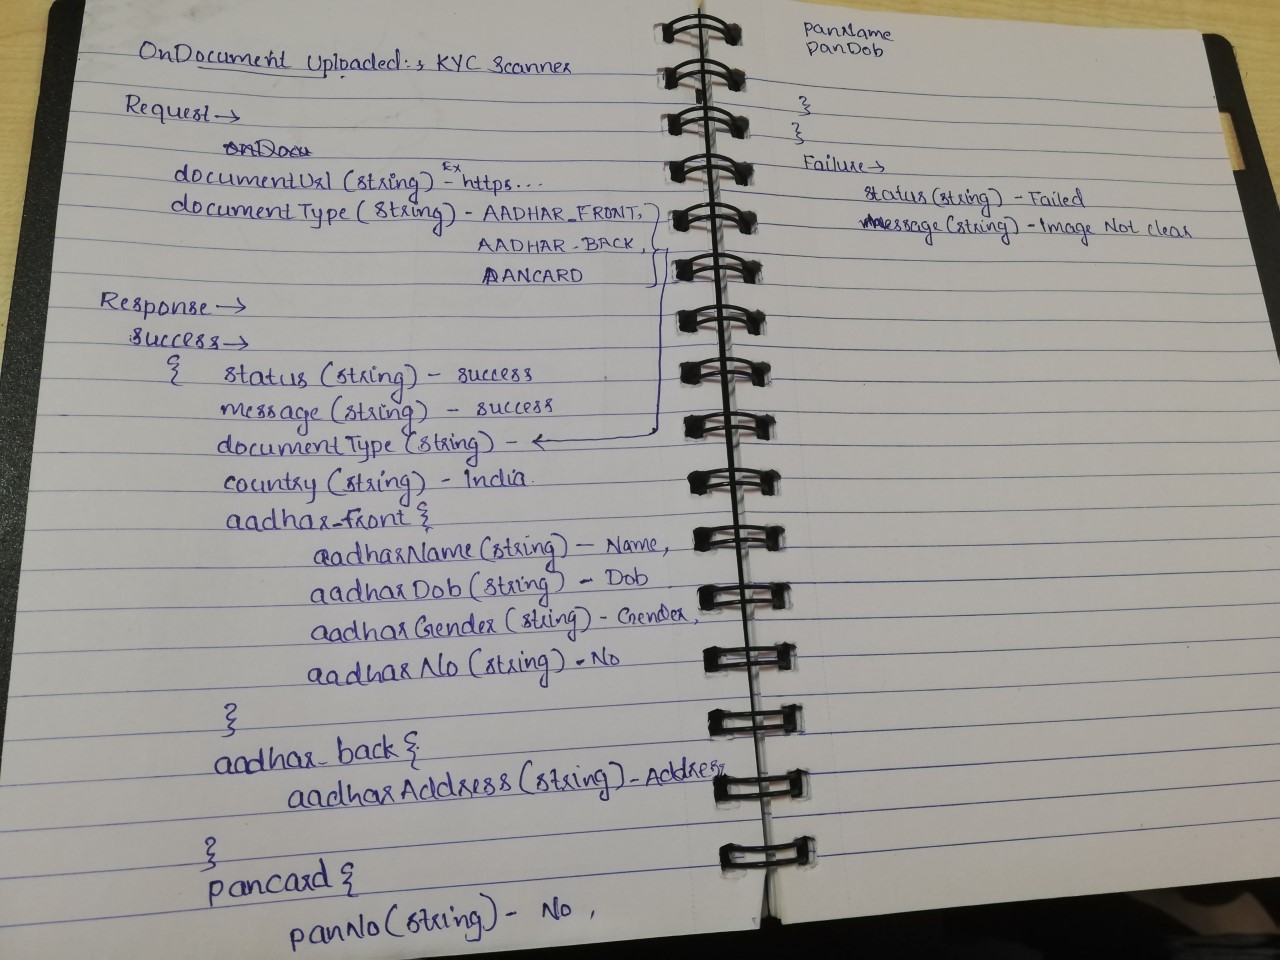 OnDocument Uploaded:, KYC Scanner
Request→
documentUrl (string) - Ex https...
documentType (string) - AADHAR_FRONT,
AADHAR_BACK,
PANCARD
Response→
success→
{ status (string) - success
message (string) - success
documentType (string) - ←
country (string) - India.
aadhar_front {
aadharName (string) - Name,
aadharDob (string) - Dob
aadharGender (string) - Gender,
aadharNo (string) - No
}
aadhar_back {
aadharAddress (string) - Address
}
pancard {
panNo (string) - No,
panName
panDob
}
}
Failure→
status (string) - Failed
message (string) - Image Not clear